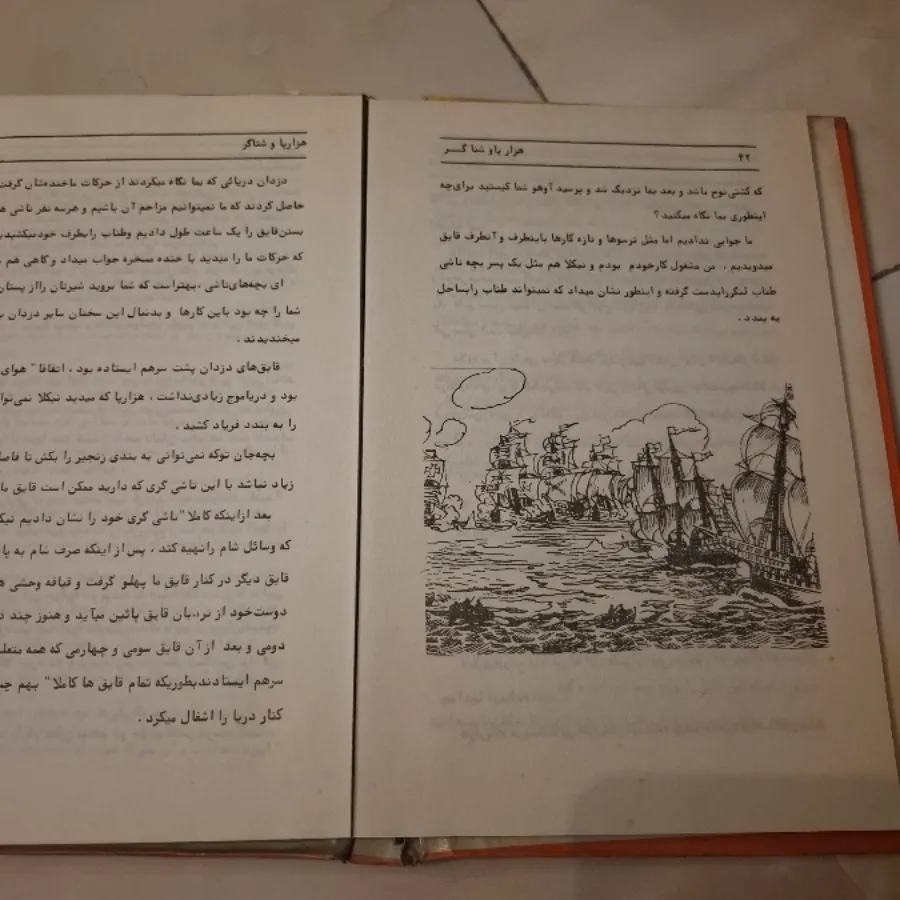 ۴۲ هزار پاو شنا گــر
که کشتی نوح باشد و بعد بما نزدیک شد و پرسید آوهو شما کیستید برای چه
اینطوری بما نگاه میکنید ؟
ما جوابی ندادیم اما مثل ترسوها و تازه کارها باینطرف و آنطرف قایق
میدویدیم ، من مشغول کارخودم بودم و نیکلا هم مثل یک پسر بچه ناشی
طناب لنگررابدست گرفته و اینطور نشان میداد که نمیتواند طناب رابساحل
به بندد .
هزارپا و شناگر
دزدان دریائی که بما نگاه میکردند از حرکات ما خنده‌شان گرفت
حاصل کردند که ما نمیتوانیم مزاحم آن باشیم و هرسه نفر ناشی
بستن قایق را یک ساعت طول دادیم وطناب رابطرف خودمیکشیدی
که حرکات ما را میدید با خنده مسخره جواب میداد و گاهی هم
ای بچه‌های ناشی ، بهتراست که شما بروید شیرتان رااز پستان
شما را چه بود باین کارها و بدنبال این سخنان سایر دزدان
میخندیدند .
قایق‌های دزدان پشت سرهم ایستاده بود ، اتفاقا" هوای
بود و دریاموج زیادی‌نداشت ، هزارپا که میدید نیکلا نمی‌توا
را به بندد فریاد کشید .
بچه‌جان توکه نمی‌توانی به بندی زنجیر را بکش تا فاصل
زیاد نباشد با این ناشی گری که دارید ممکن است قایق
بعد ازاینکه کاملا" ناشی گری خود را نشان دادیم نیک
که وسائل شام راتهیه کند ، پس از اینکه صرف شام به پا
قایق دیگر در کنار قایق ما پهلو گرفت و قیافه وحشی
دوست‌خود از نردبان قایق پائین میآید و هنوز چند
دومی و بعد ازآن قایق سومی و چهارمی که همه متعل
سرهم ایستادندبطوریکه تمام قایق ها کاملا" بهم
کنار دریا را اشغال میکرد .